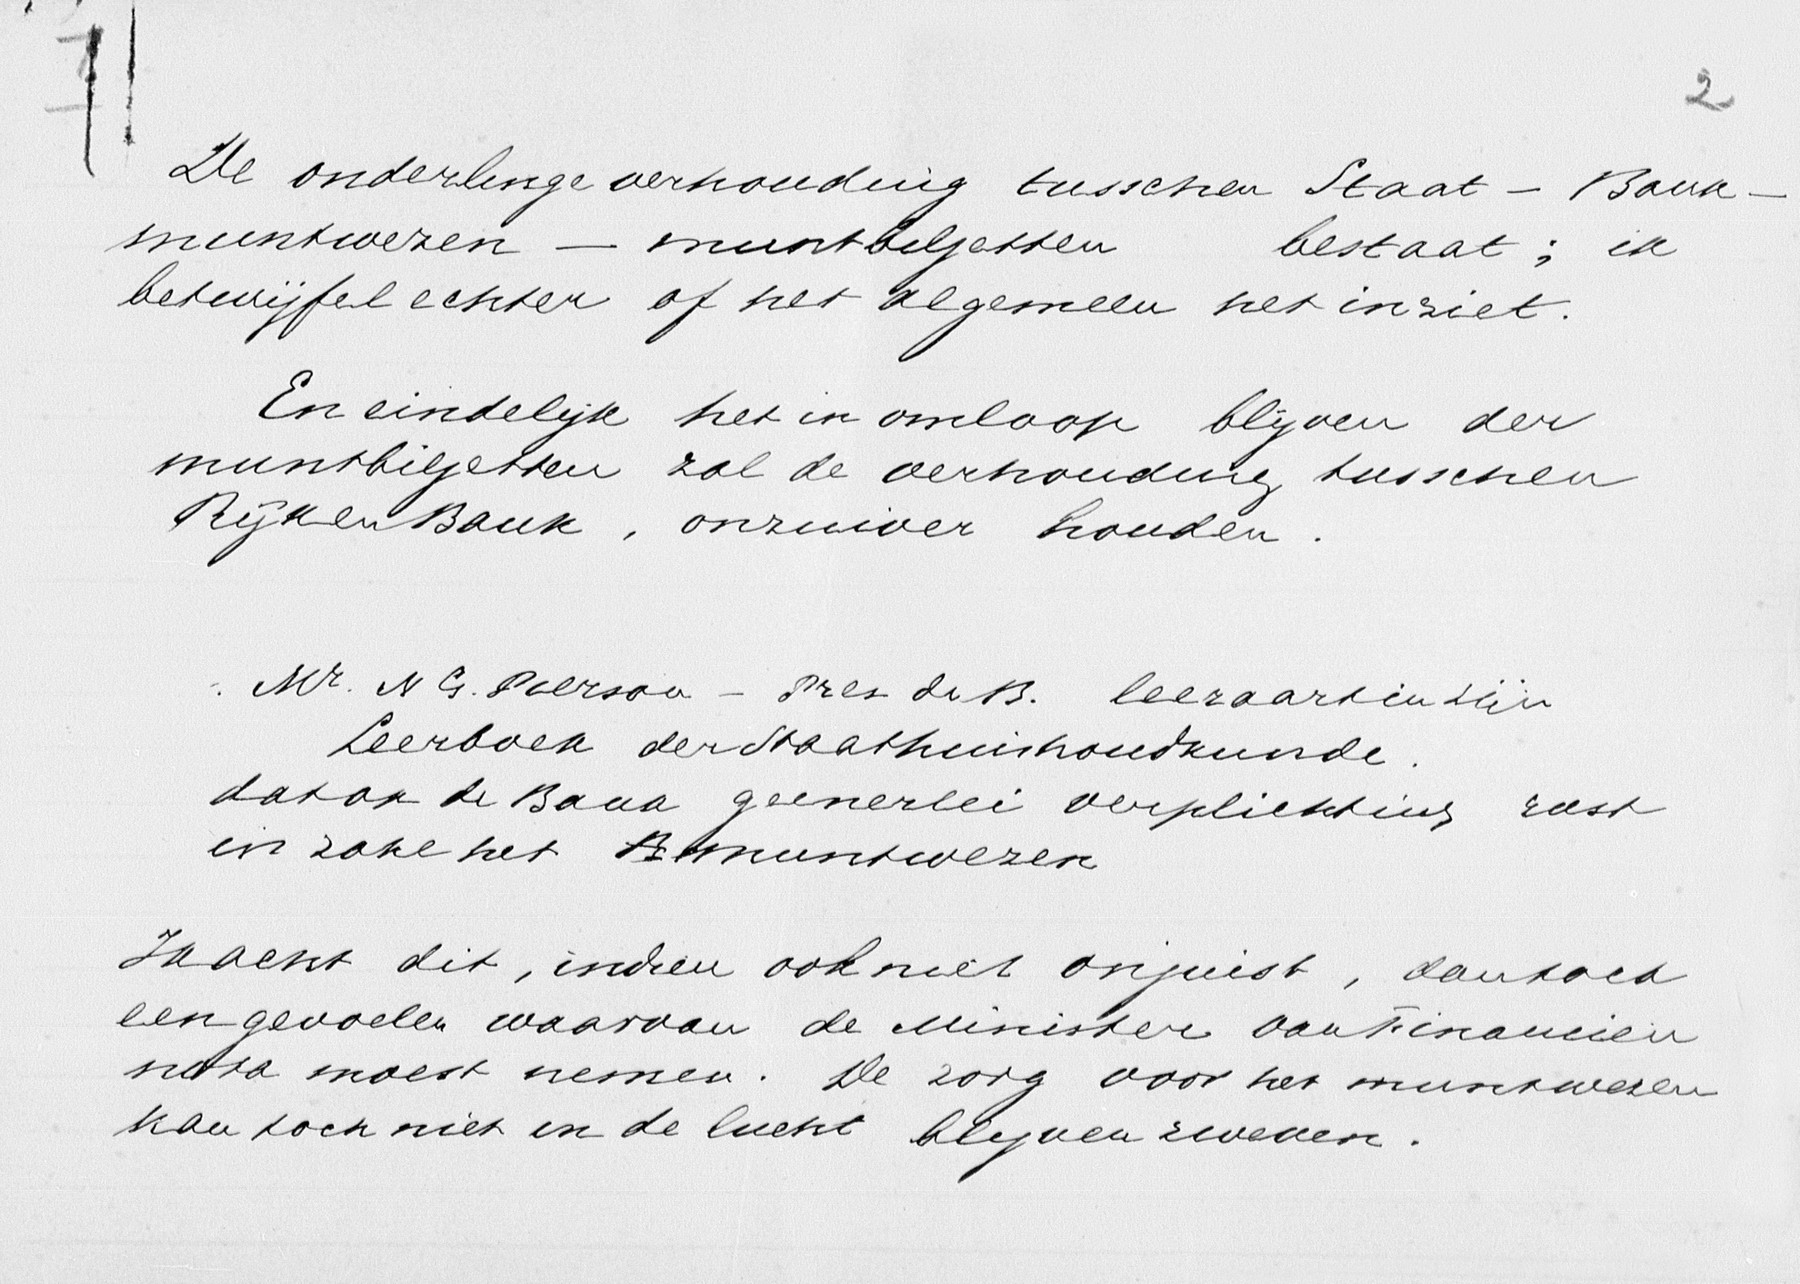 2
De onderlinge verhouding tusschen Staat – Bank –
muntwezen – muntbiljetten bestaat; ik
betwijfel echter of het algemeen het inziet.
En eindelijk het in omloop blijven der
muntbiljetten zal de verhouding tusschen
Rijk en Bank, onzuiver houden.
Mr. N G. Pierson – Pres de B. leeraart in zijn
Leerboek der Staathuishoudkunde.
dat op de Bank geenerlei verplichting rust
in zake het muntwezen
Ik acht dit, indien ook niet onjuist, dan toch
een gevoelen waarvan de Minister van Financiën
nota moest nemen. De zorg voor het muntwezen
kan toch niet in de lucht blijven zweven.